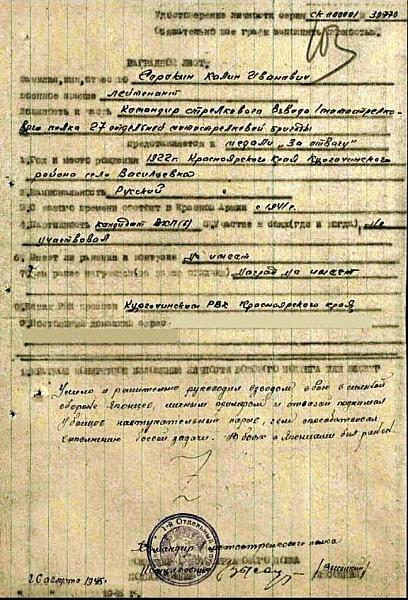 Удостоверение личности серии СК 00001/ 30770
Обязательно все графы заполнить полностью.
НАГРАДНОЙ ЛИСТ.
Фамилия, имя, отчество Сорокин Калин Иванович
Военное звание лейтенант
Должность и часть Командир стрелкового взвода 1 мотострелко-
вого полка 27 отдельной мотострелковой бригады
представляется к медали „За отвагу"
1. Год и место рождения 1922г. Красноярского края
района село Васильевка
2. Национальность Русский
3. С какого времени состоит в Красной Армии с 1941г.
4. Партийность кандидат ВКП(б) 5. Участие в боях (где и когда) не
участвовал
6. Имеет ли ранения и контузии не имеет
7. Чем ранее награжден (за какие отличия) наград не имеет
8. Каким РВК призван РВК Красноярского края
9. Постоянный домашний адрес
Умело и решительно руководил взводом в бою в сильной
обороне Японцев, личным примером и отвагой поднимал
бойцов наступательный порыв, чем способствовал
выполнению боевой задачи. В боях с Японцами был ранен
1-й Отдельный
Командир мотострелкового полка
Подполковник
26 августа 1945г.